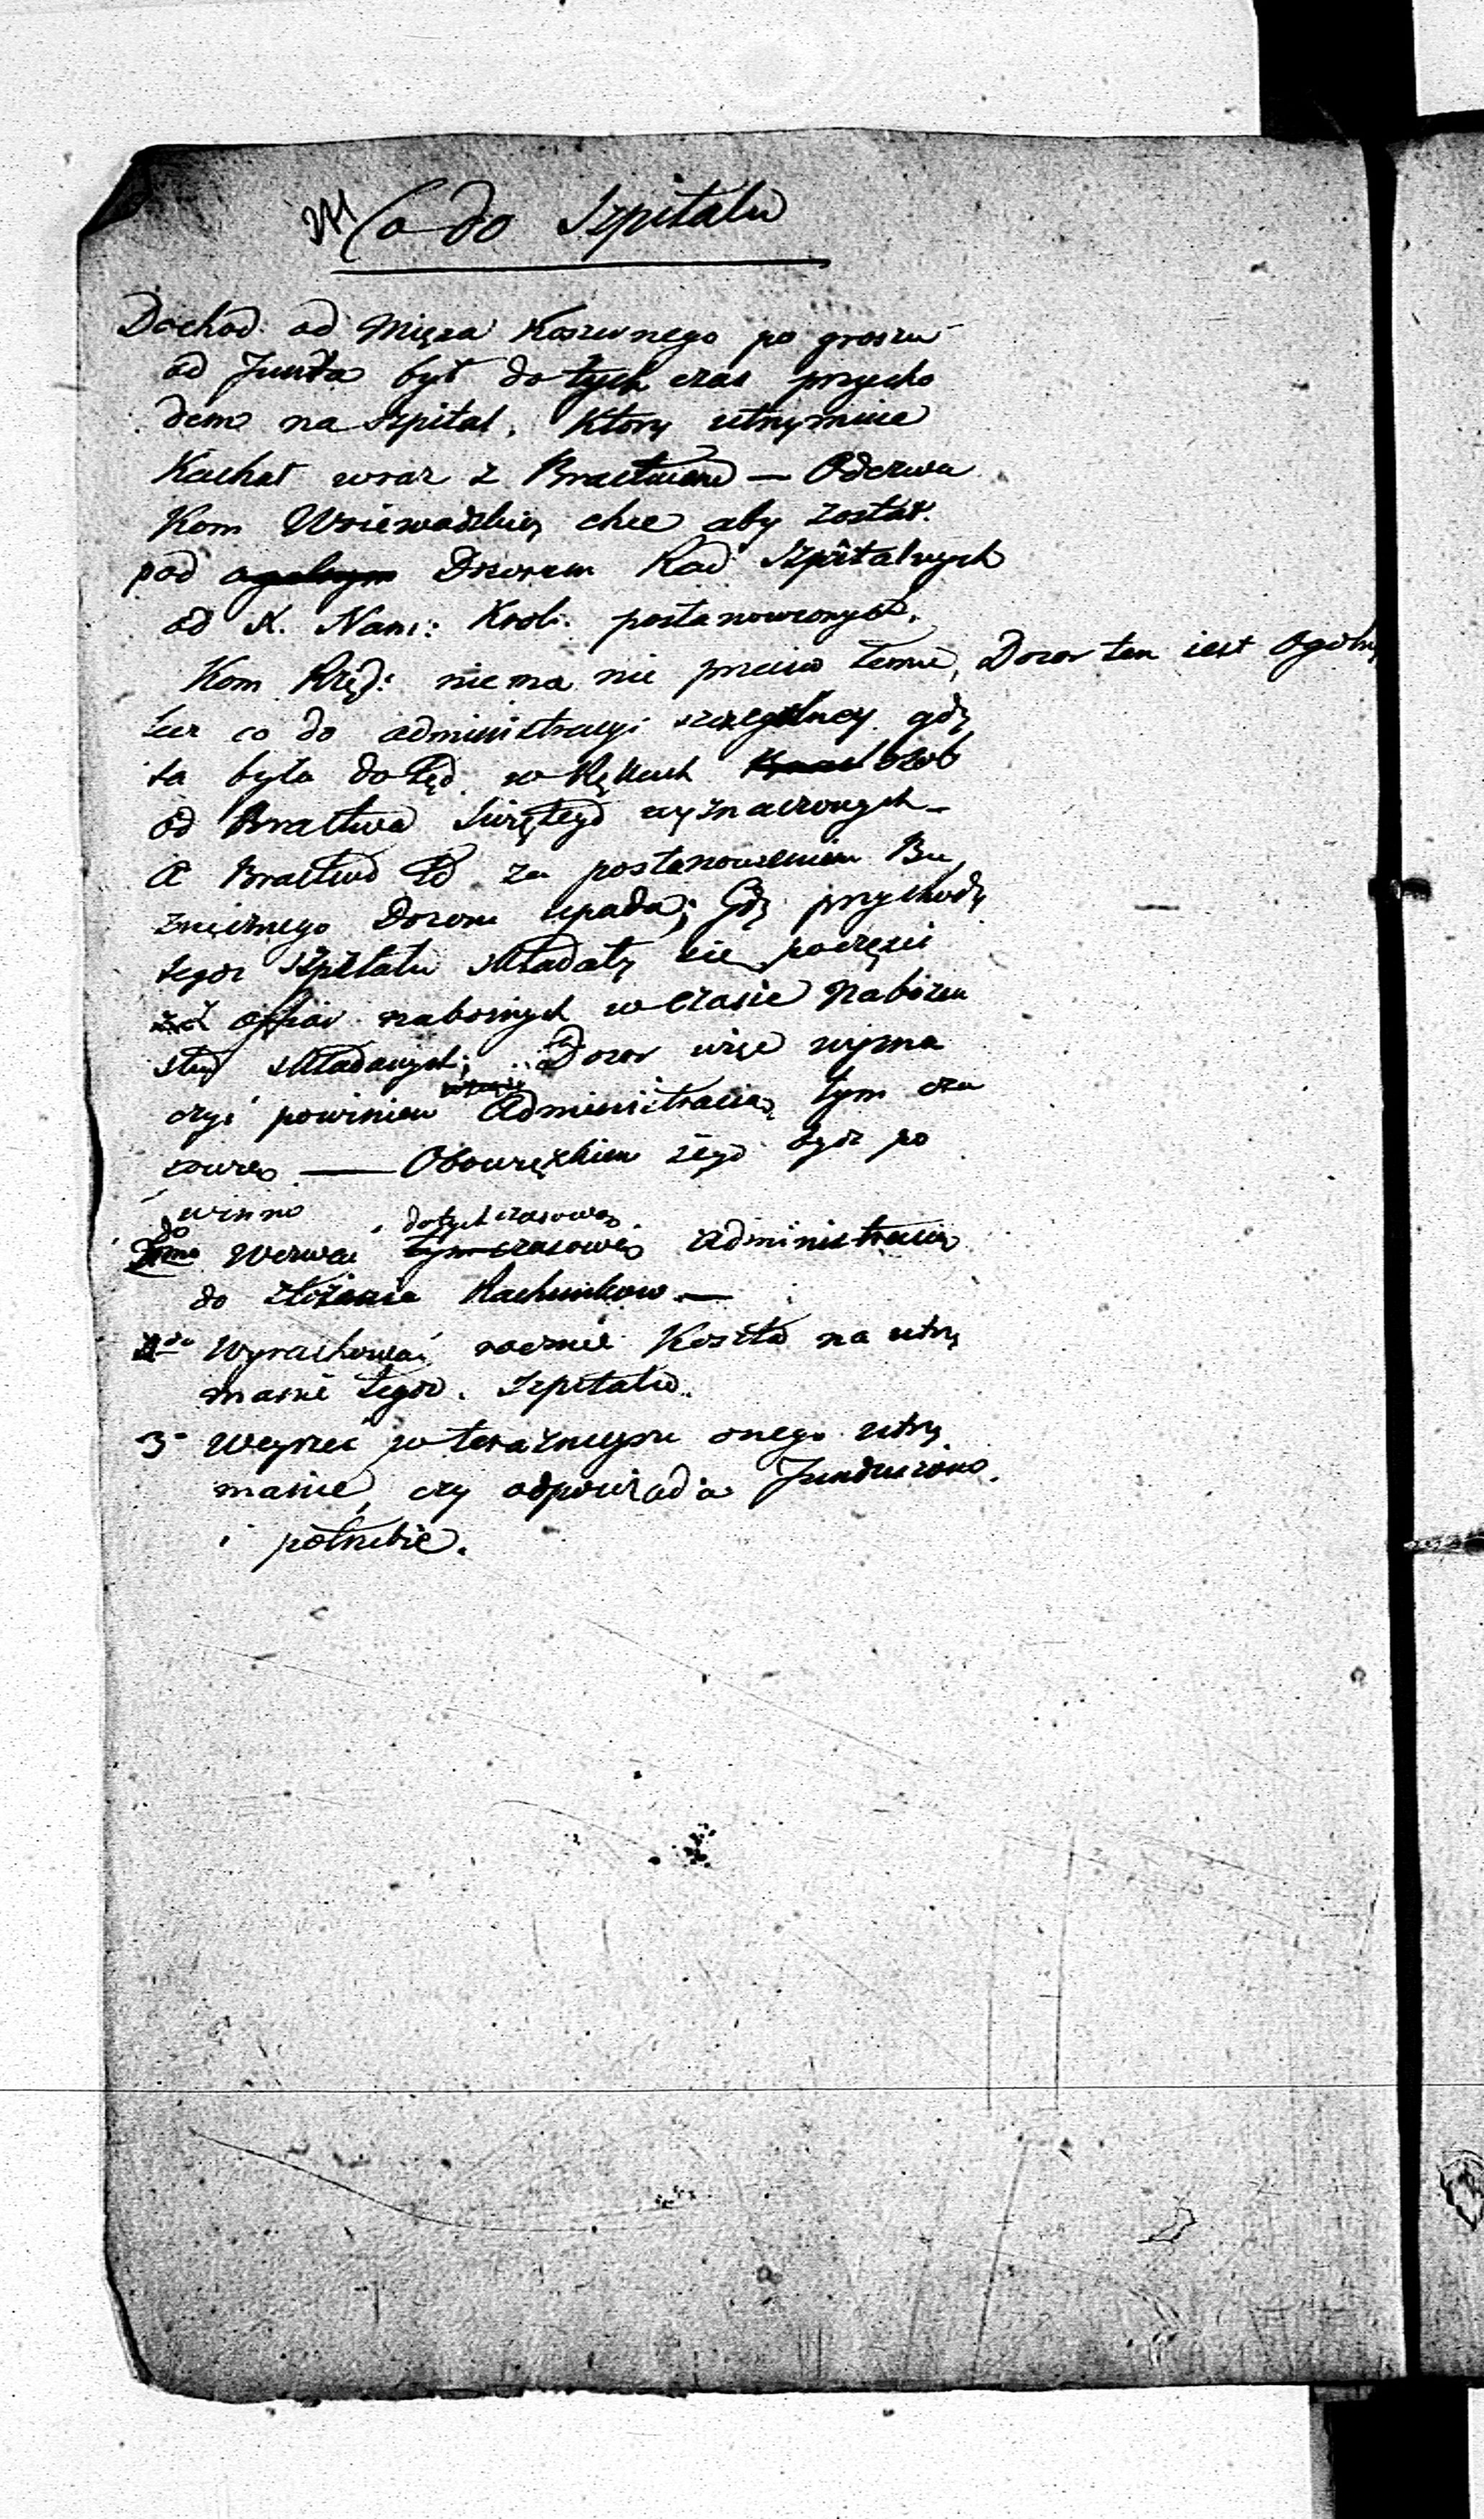 Co do Szpitalu
Dochod od Mięsa Koszernego po groszu
od Funta był dotych czas przycho
dem na Szpital, Ktory utrzymuie
Kachał wraz z Bractwem — Odezwa
Kom Woiewodzkiey chce aby został
pod ogolnym Dozorem Rad Szpitalnych
od X. Nam: Krol: postanowionych.
Kom Rzą: nie ma nic przeciw temu, Dozor ten iest Ogolny
lecz co do administracyi szczegulney gdy
ta była dotąd w Rękach osob
od Bractwa Swiętego wyznaczonych —
A Bractwo to za postanowieniem Bu
zniczego Dozoru upada; Gdy przychody
tegoz Szpitalu składały się poczęści
z ofiar naboznych w czasie Nabozen
stw składanych; Dozor więc wyzna
czyć powinien Administracią tym cza
sową — Obowiązkiem iego bydz po
winno
dotychczasową
Wezwać tymczasową Administracią
do złożenia Rachunkow —
2do Wyrachować rocznie Koszta na utrzy
manie tegoz Szpitalu.
3o Weyrzeć w teraznieysze onego utrzy
manie, czy odpowiada Funduszowi
i potrzebie.